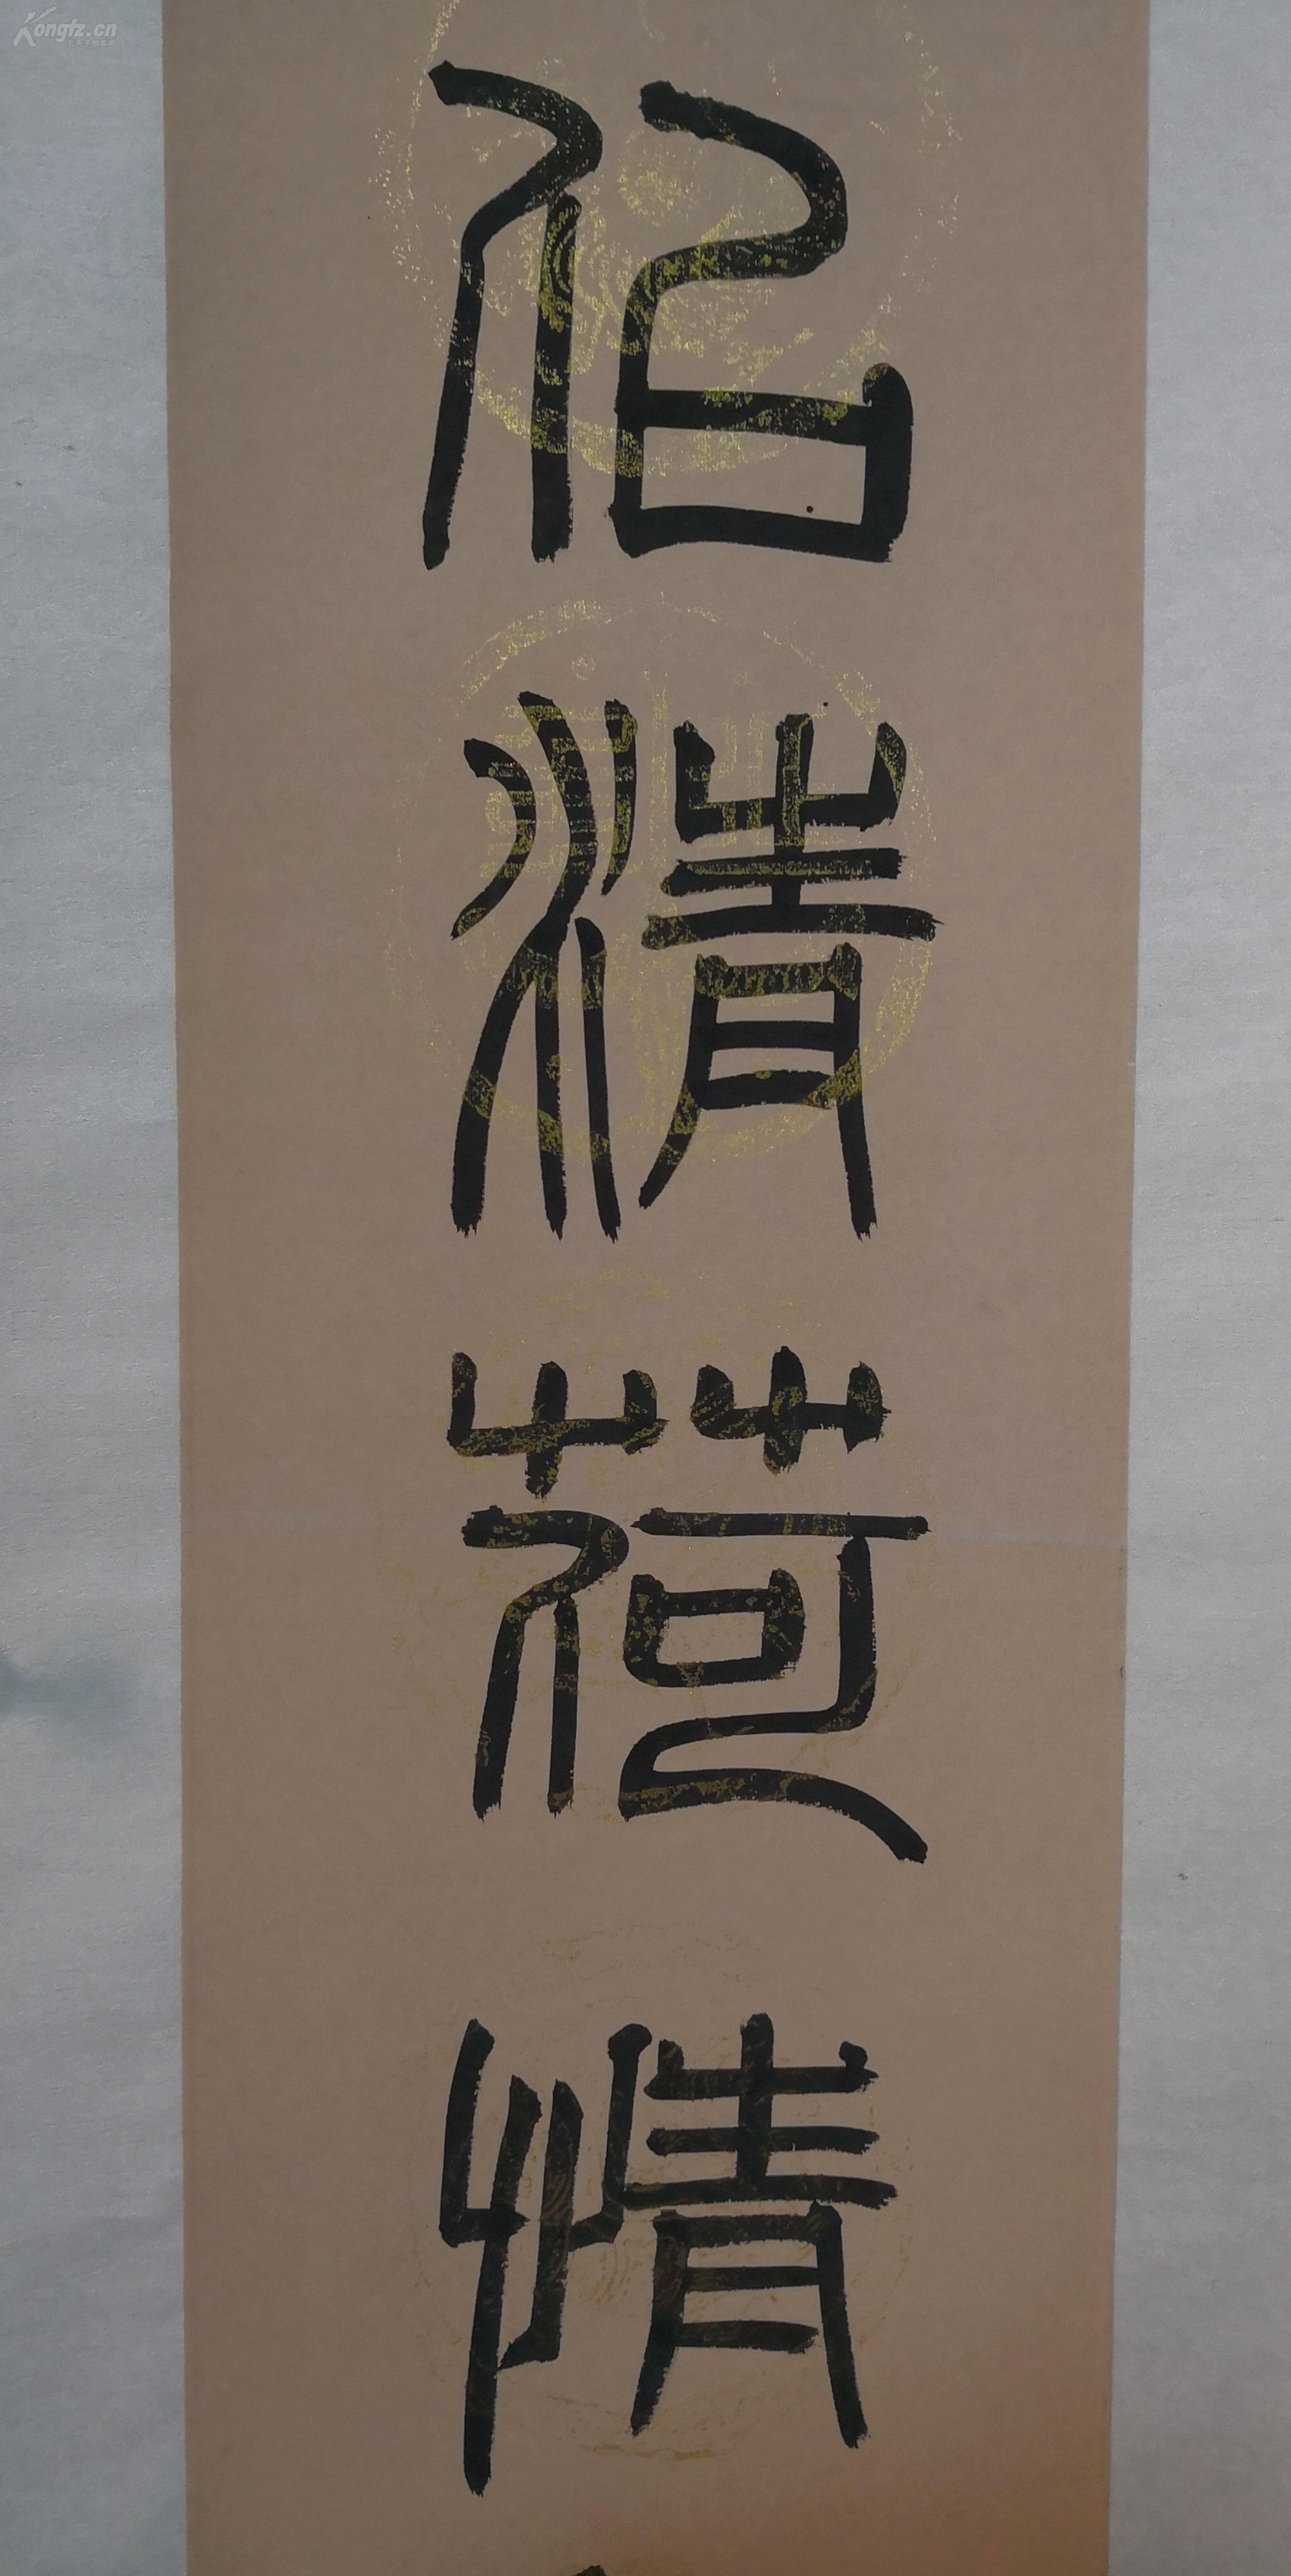 Kongfz.cn
似
清
荷
情